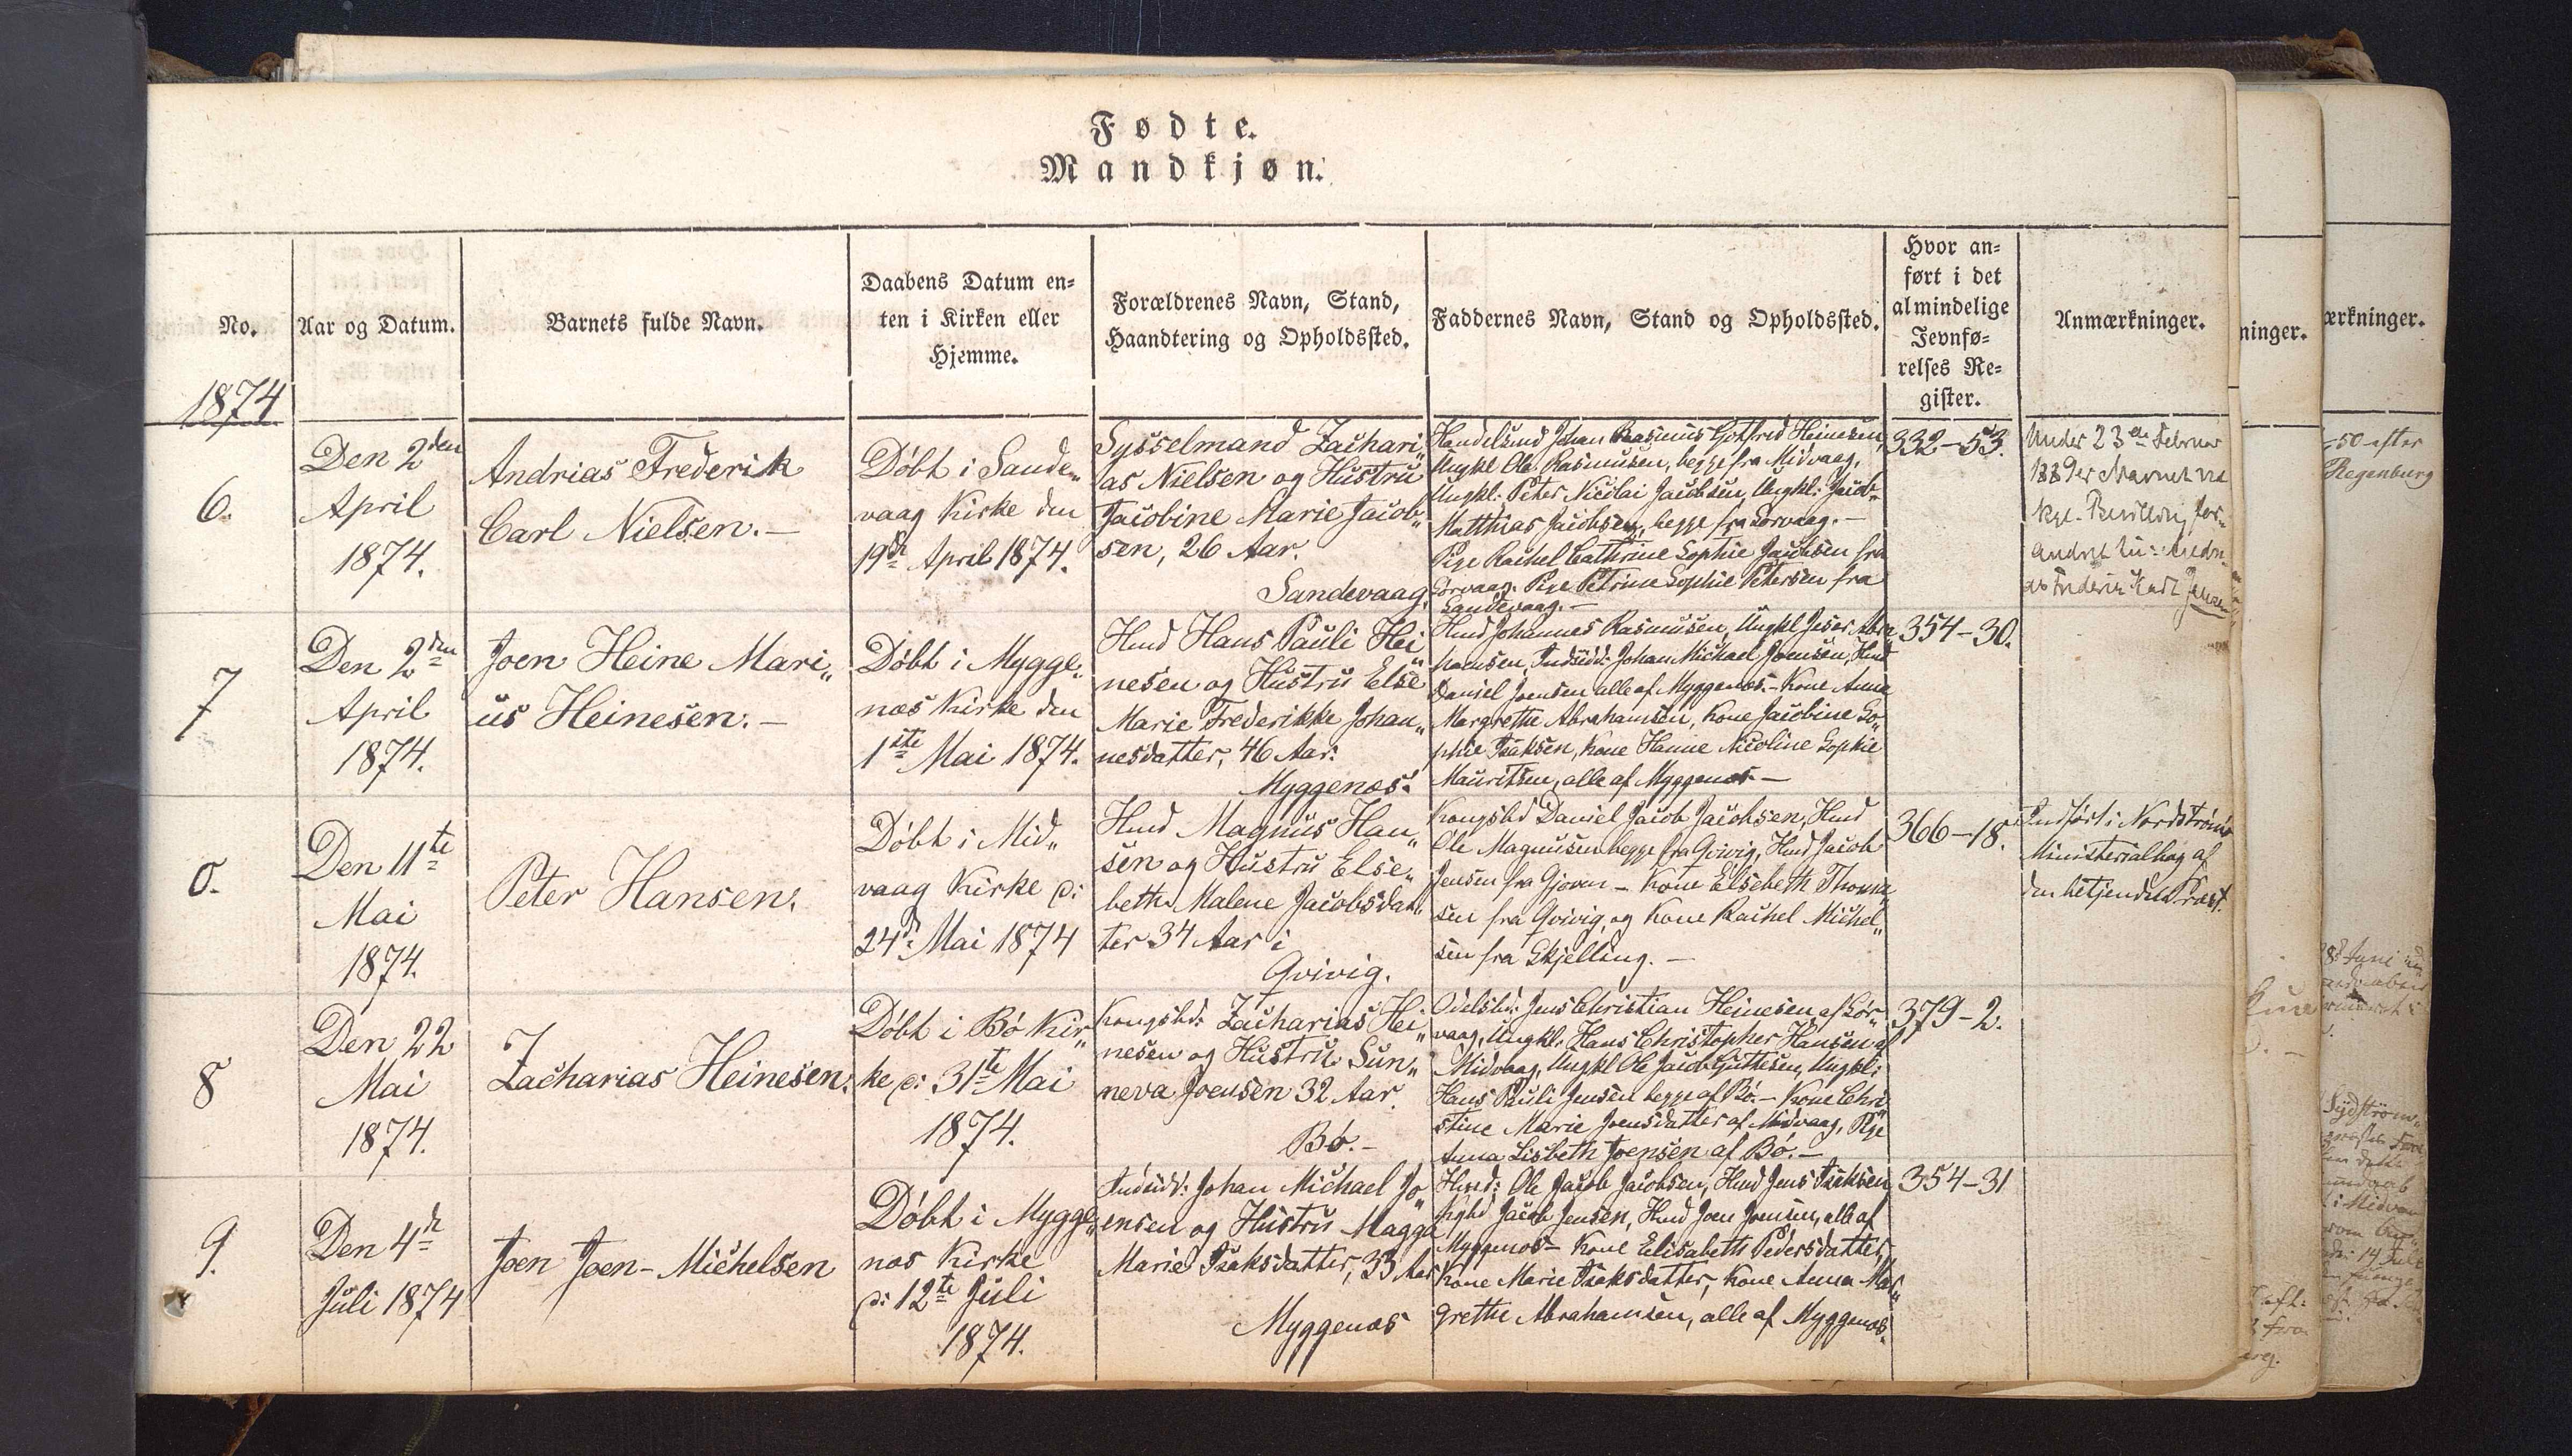 Fødte.
Mandkjøn.
No.
Aar og Datum.
Barnets fulde Navn.
Daabens Datum en-
ten i Kirken eller
Hjemme.
Forældrenes Navn, Stand,
Haandtering og Opholdssted.
Faddernes Navn, Stand og Opholdssted.
Hvor an-
ført i det
almindelige
Jevnfø-
relses Re-
gister.
Anmærkninger.
1874
6.
Den 2den
April
1874.
Andrias Frederik
Carl Nielsen.-
Døbt i Sande„
vaag Kirke den
19de April 1874.
Sysselmand Zachari„
as Nielsen og Hustru
Jacobine Marie Jacob„
sen, 26 Aar.
Sandevaag.
Johan Rasmus Gotfred Heinesen,
Ungkl Ole Rasmusen, begge fra Midvaag,
Ungkl: Peter Nicolai Jacobsen, Ungkl: Jacob
Matthias Jacobsen, begge fra Sørvaag.-
Pige Rachel Cathrine Sophie Jacobsen fra
Sørvaag. Pige Petrine Sophie Petersen fra
Sandevaag.-
332-53.
Under 23de Februar
1889 er Navnet ved
kgl. Bevilling for„
andret til: Andri
as Frederik Karl
7
Den 2den
April
1874.
Joen Heine Mari„
us Heinesen.-
Døbt i Mygge„
næs Kirke den
1ste Mai 1874.
Hmd Hans Pauli Hei„
nesen og Hustru Else
Marie Frederikke Johan„
nesdatter, 46 Aar.
Myggenæs.
Hmd Johannes Rasmusen, Ungkl Abra
hamsen, Indsidd: Johan Michael Joensen, Hmd
Daniel Joensen alle af Myggenæs.- Kone Anna
Margrethe Abrahamsen, Kone Jacobine So„
phie Isaksen, Kone Hanne Nicoline Sophie
Mauritsen, alle af Myggenæs-
354-30.
0.
Den 11te
Mai
1874.
Peter Hansen.
Døbt i Mid„
vaag Kirke d:
24d: Mai 1874
Hmd Magnus Han„
sen og Hustru Else„
beth Malene Jacobsdat„
ter 34 Aar i
Qvivig.
Kongsbd Daniel Jacob Jacobsen, Hmd
Ole Magnusen begge fra Qvivig, Hmd Jacob
Jensen fra Gjoven - Kone Elsebeth Thoma„
sen fra Qvivig, og Kone Rachel Michel„
sen fra Skjelling.-
366-18.
Indført i Nordstrømø
Ministerialbog af
den betjendende Præst.
8
Den 22
Mai
1874.
Zacharias Heinesen.
Døbt i Bø Kir„
ke d: 31te Mai
1874.
Kongsbd: Zacharias Hei„
nesen og Hustru Sun„
neva Joensen 32 Aar.
Bø.-
Odelsbd: Jens Christian Heinesen af Sør„
vaag, Ungkl: Hans Christopher Hansen af
Midvaag, Ungkl Ole Jacob Guttesen, Ungkl:
Hans Pauli Jensen begge af Bø.- Kone Chri„
stine Marie Joensdatter af Midvaag, Pige
Anna Lisbeth Joensen af Bø.-
379-2.
9.
Den 4de
Juli 1874
Joen Joen-Michelsen
Døbt i Mygge„
næs Kirke
d: 12te Juli
1874.
Indsidd: Johan Michael Jo„
ensen og Hustru Magga
Marie Isaksdatter, 33 Aar
Myggenæs
Hmd: Ole Jacob Jacobsen, Hmd Jens Isaksen
Jacob Jensen, Hmd Joen Joensen, alle af
Myggenæs- Kone Elisabeth Pedersdatter,
Kone Marie Isaksdatter, Kone Anna Mar„
grethe Abrahamsen, alle af Myggenæs.
354-31
ninger.
ærkninger.
50 efter
Regenburg